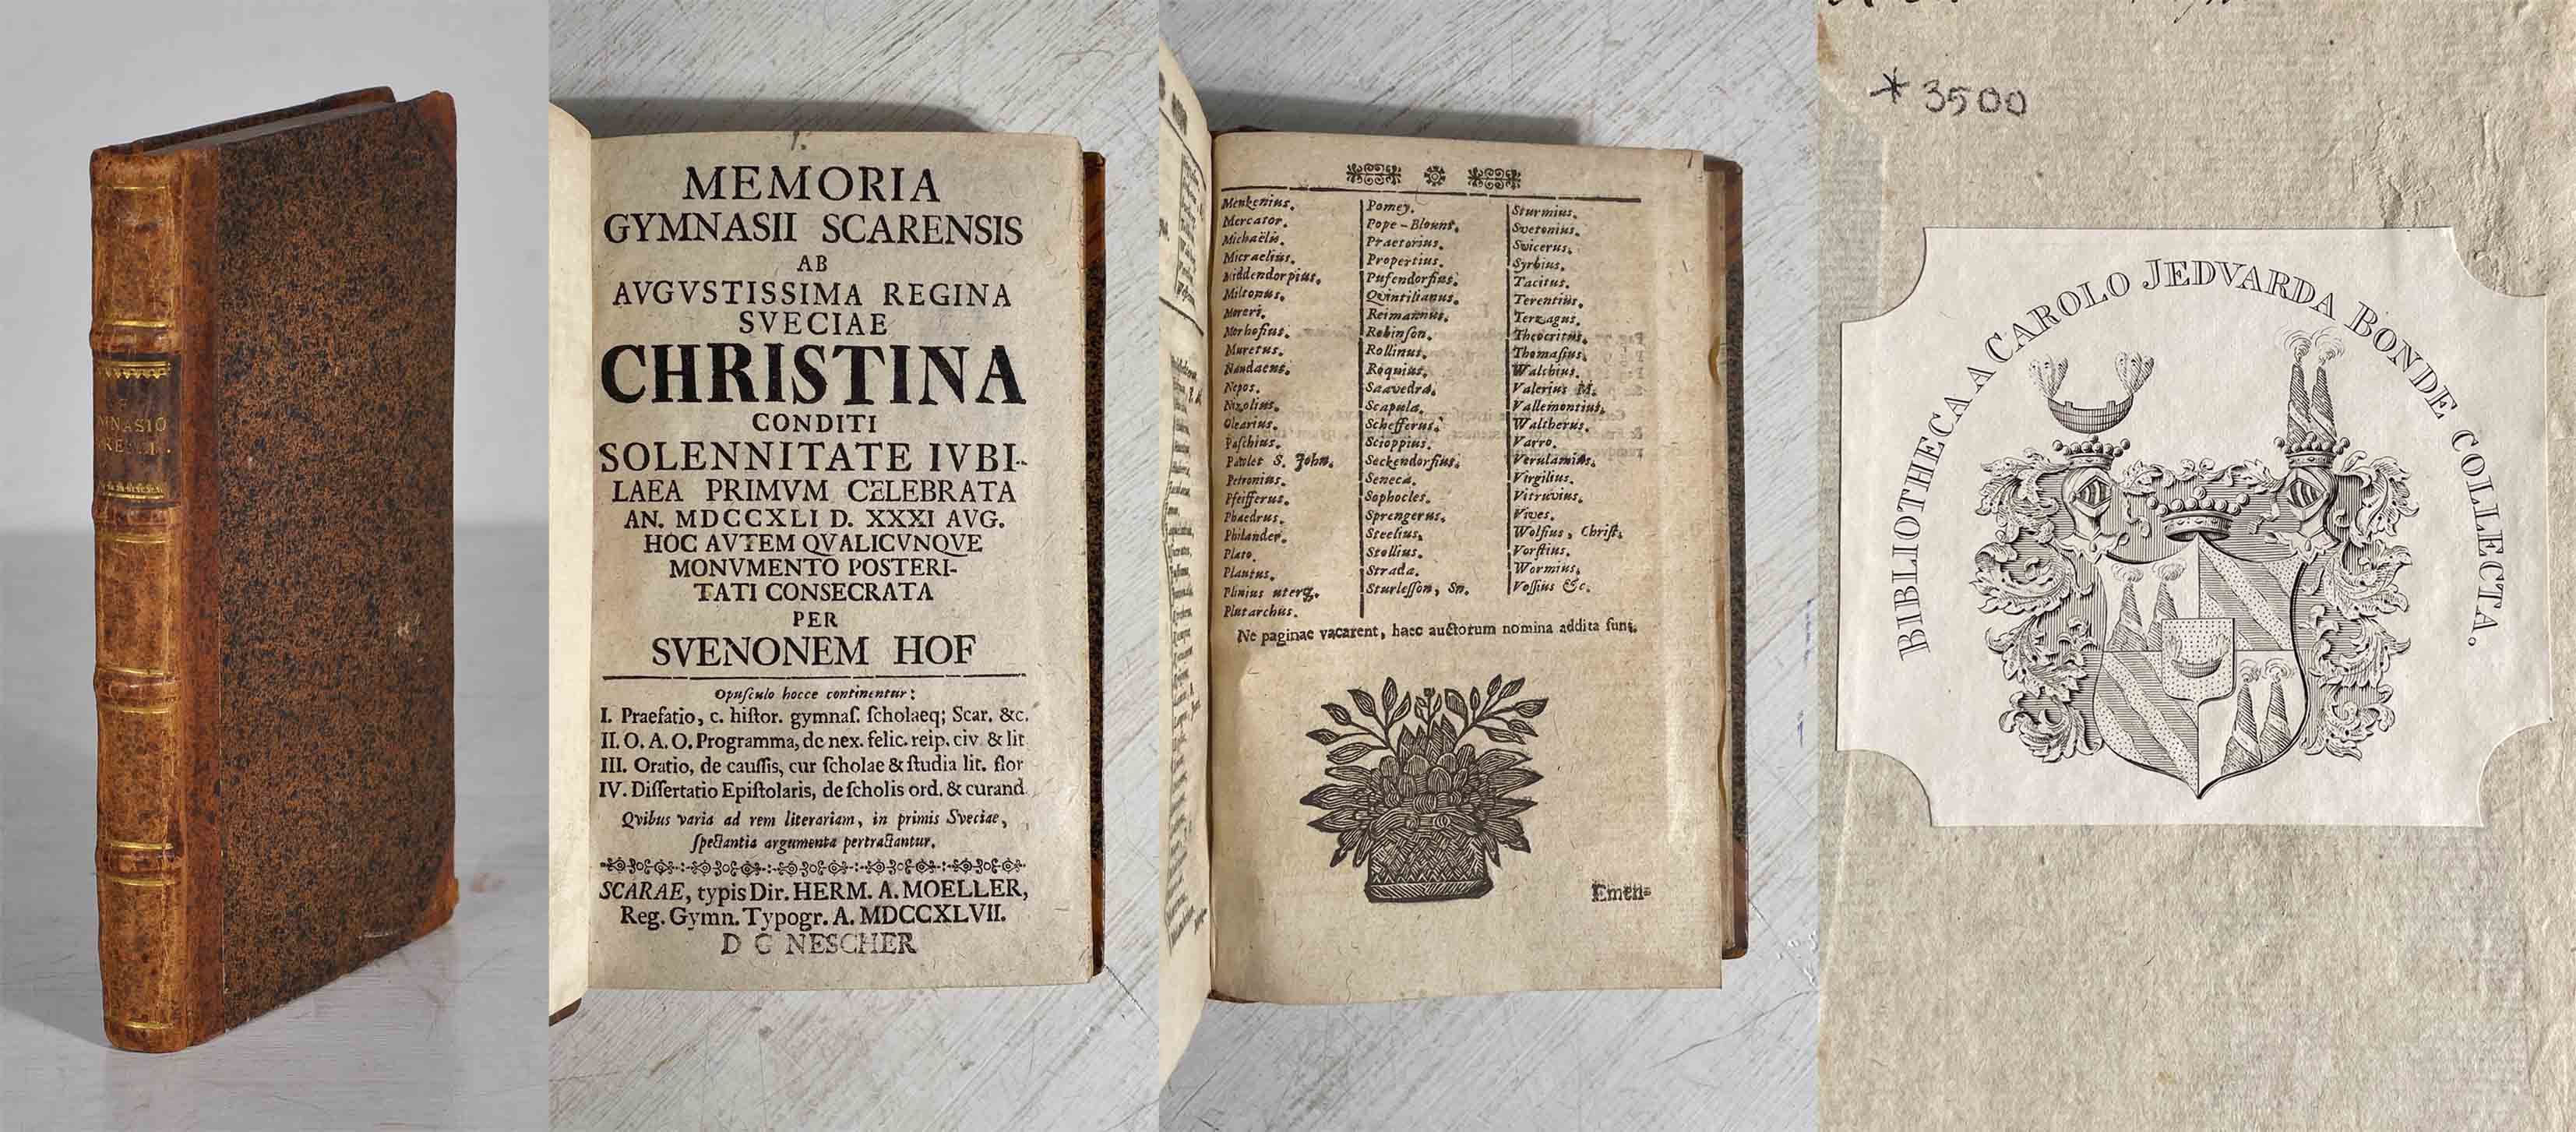 MEMORIA
GYMNASII SCARENSIS
AB
AVGVSTISSIMA REGINA
SVECIAE
CHRISTINA
CONDITI
SOLENNITATE IVBI-
LAEA PRIMVM CELEBRATA
AN. MDCCXLI D. XXXI AVG.
HOC AVTEM QVALICVNQVE
MONVMENTO POSTERI-
TATI CONSECRATA
PER
SVENONEM HOF
Opuſculo hocce continentur:
I. Praefatio, c. hiſtor. gymnaſ. ſcholaeq; Scar. &c.
II. O. A. O. Programma, de nex. felic. reip. civ. & lit
III. Oratio, de cauſſis, cur ſcholae & ſtudia lit. flor
IV. Diſſertatio Epiſtolaris, de ſcholis ord. & curand
Qvibus varia ad rem literariam, in primis Sveciae,
ſpectantia argumenta pertractantur.
SCARAE, typis Dir. HERM. A. MOELLER,
Reg. Gymn. Typogr. A. MDCCXLVII.
D C NESCHER
Menkenius.
Mercator.
Michaëlis.
Micraelius.
Middendorpius.
Miltonus.
Moreri.
Morhofius.
Muretus.
Naudaeus.
Nepos.
Nizolius.
Olearius.
Paſchius.
Pawlet S. John.
Petronius.
Pfeifferus.
Phaedrus.
Philander.
Plato.
Plautus.
Plinius uterq.
Plutarchus.
Pomey.
Pope-Blount.
Praetorius.
Propertius.
Pufendorfius.
Qvintilianus.
Reimannus.
Robinſon.
Rollinus.
Roquius.
Saavedra.
Scapula.
Schefferus.
Scioppius.
Seckendorfius.
Seneca.
Sophocles.
Sprengerus.
Steelius.
Stollius.
Strada.
Sturleſſon, Sn.
Sturmius.
Svetonius.
Svicerus.
Syrbius.
Tacitus.
Terentius.
Terzagus.
Theocritus.
Thomaſius.
Walchius.
Valerius M.
Vallemontius.
Waltherus.
Varro.
Verulamius.
Virgilius.
Vitruvius.
Vives.
Wolfius, Chriſt.
Vorſtius.
Wormius.
Voſſius &c.
Ne paginae vacarent, haec auctorum nomina addita ſunt.
Emen-
* 3500
BIBLIOTHECA A CAROLO JEDVARDA BONDE COLLECTA.